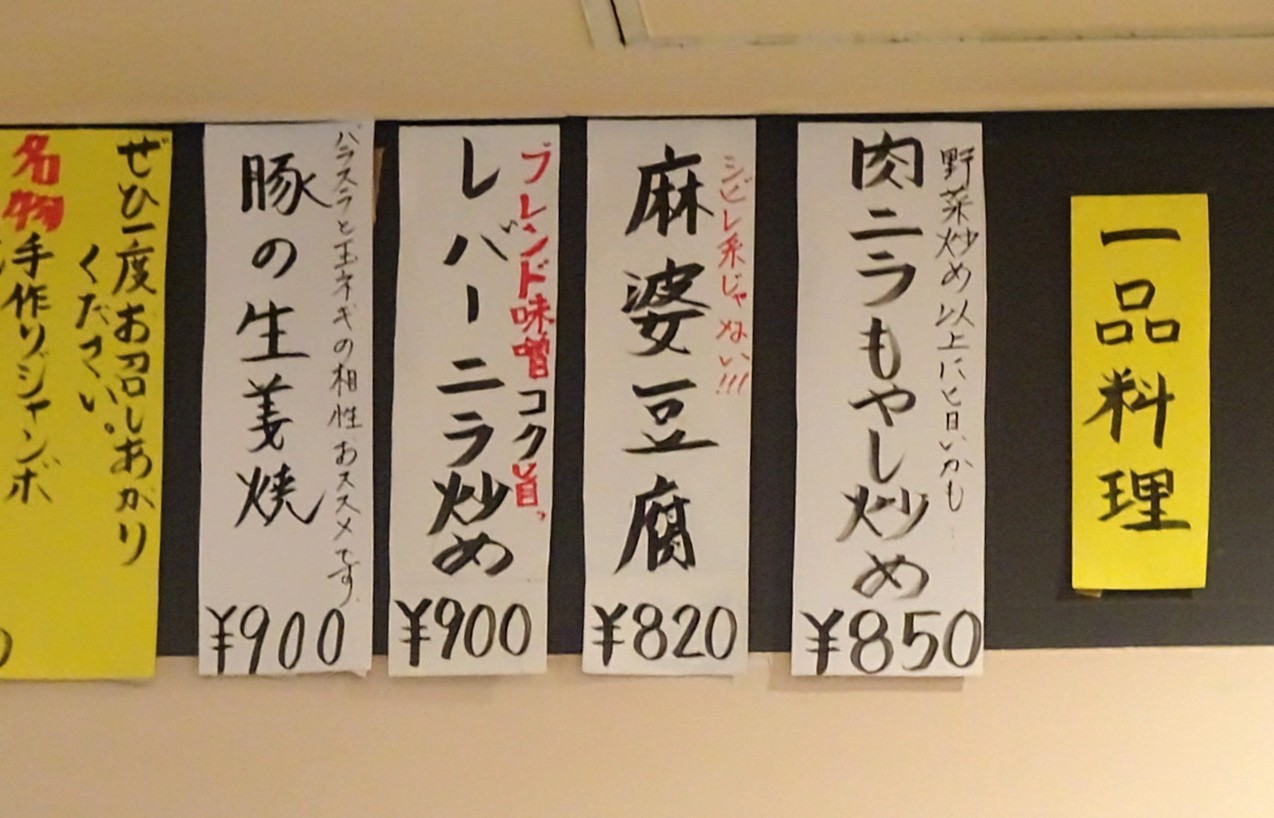 一品料理
野菜炒め以上にと旨いかも
肉ニラもやし炒め
¥850
シビレ系じゃぬい!!!
麻婆豆腐
¥820
ブレンド味噌コク旨っ
レバーニラ炒め
¥900
バラスラと玉ネギの相性おススメです
豚の生姜焼
¥900
ぜひ一度お召しあがり
ください。
名物手作りジャンボ